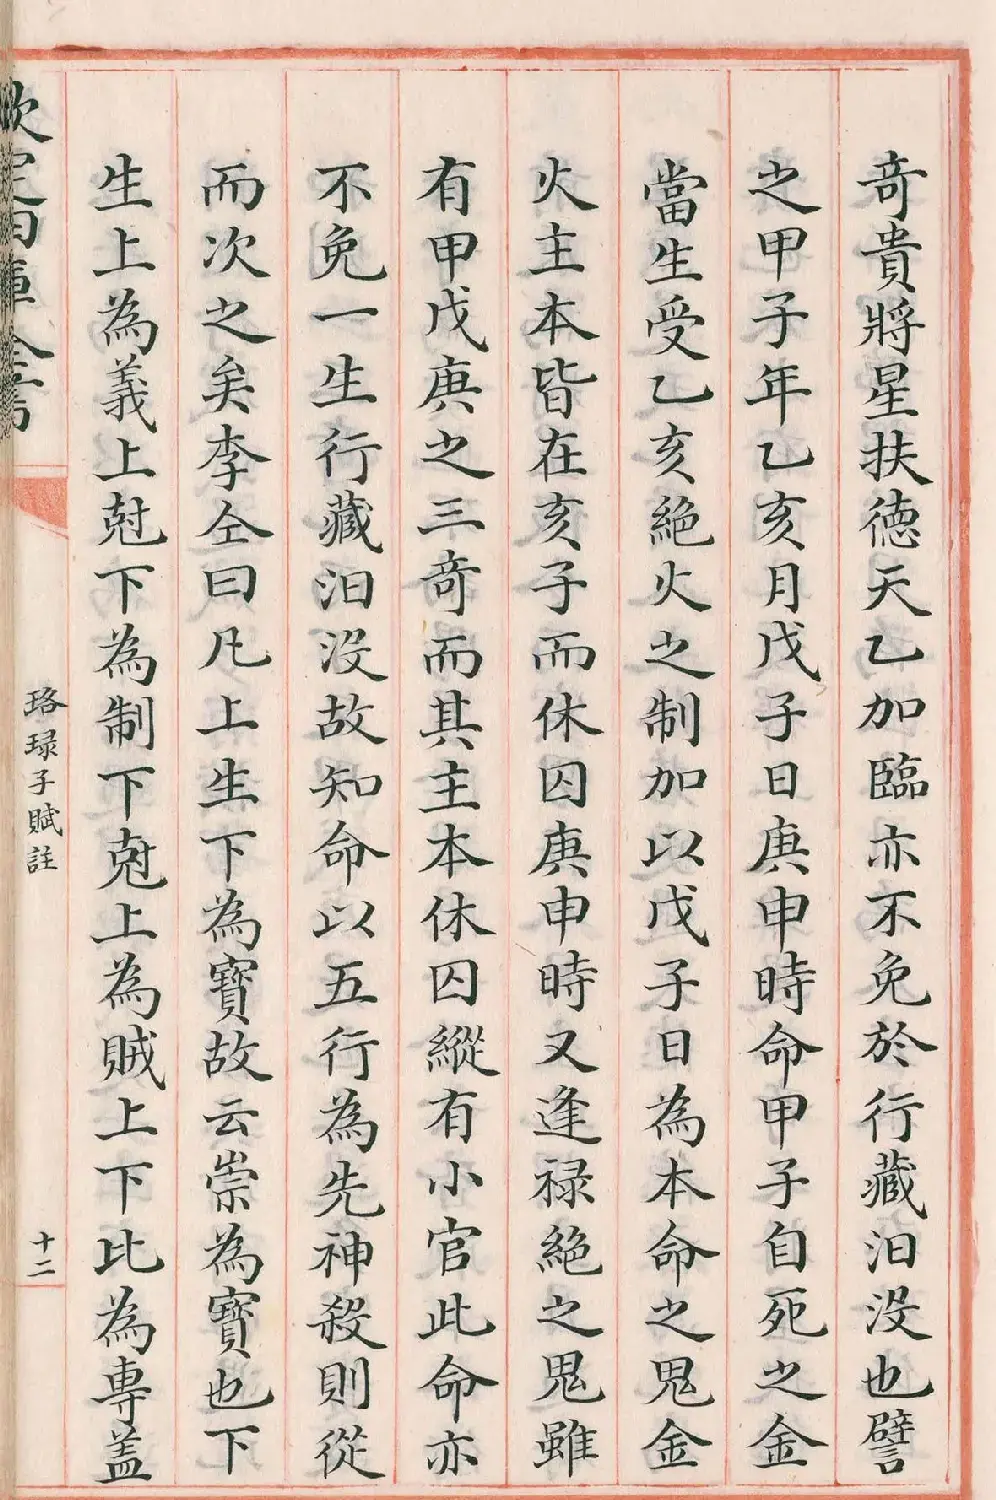 奇貴將星扶德天乙加臨亦不免於行藏汨没也譬
之甲子年乙亥月戊子日庚申時命甲子自死之金
當生受乙亥絶火之制加以戊子日為本命之鬼金
火主本皆在亥子而休囚庚申時又逢禄絶之鬼雖
有甲戊庚之三奇而其主本休囚縱有小官此命亦
不免一生行藏汨没故知命以五行為先神殺則從
而次之矣李仝曰凡上生下為寶故云崇為寶也下
生上為義上尅下為制下尅上為賊上下比為專蓋
欽定四庫全書
珞琭子賦註
十二